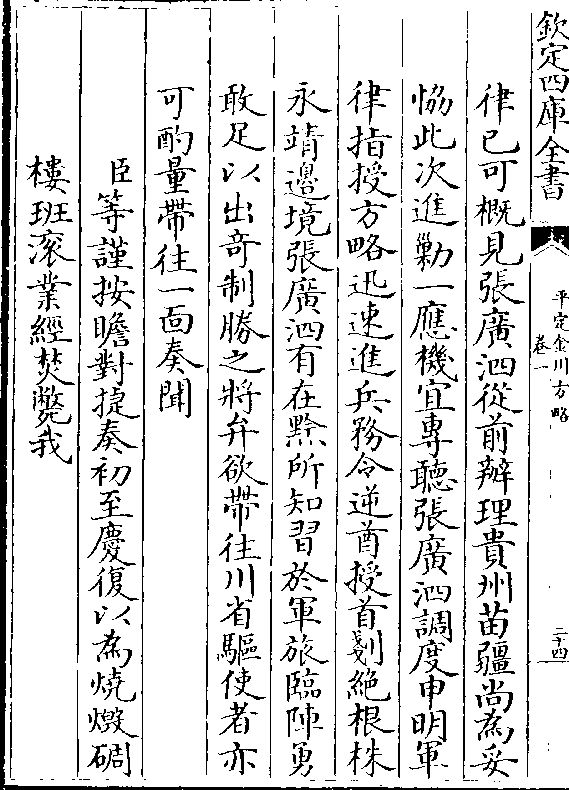 欽定四庫全書
平定金川方略
卷一
二十四
律已可概見張廣泗從前辦理貴州苗疆尚為妥
恊此次進勦一應機宜專聽張廣泗調度申明軍
律指授方略迅速進兵務令逆酋授首剗絶根株
永靖邊境張廣泗有在黔所知習於軍旅臨陣勇
敢足以出奇制勝之將弁欲帶往川省驅使者亦
可酌量帶往一面奏聞
臣等謹按瞻對捷奏初至慶復以為燒燬碉
樓班滚業經焚斃我